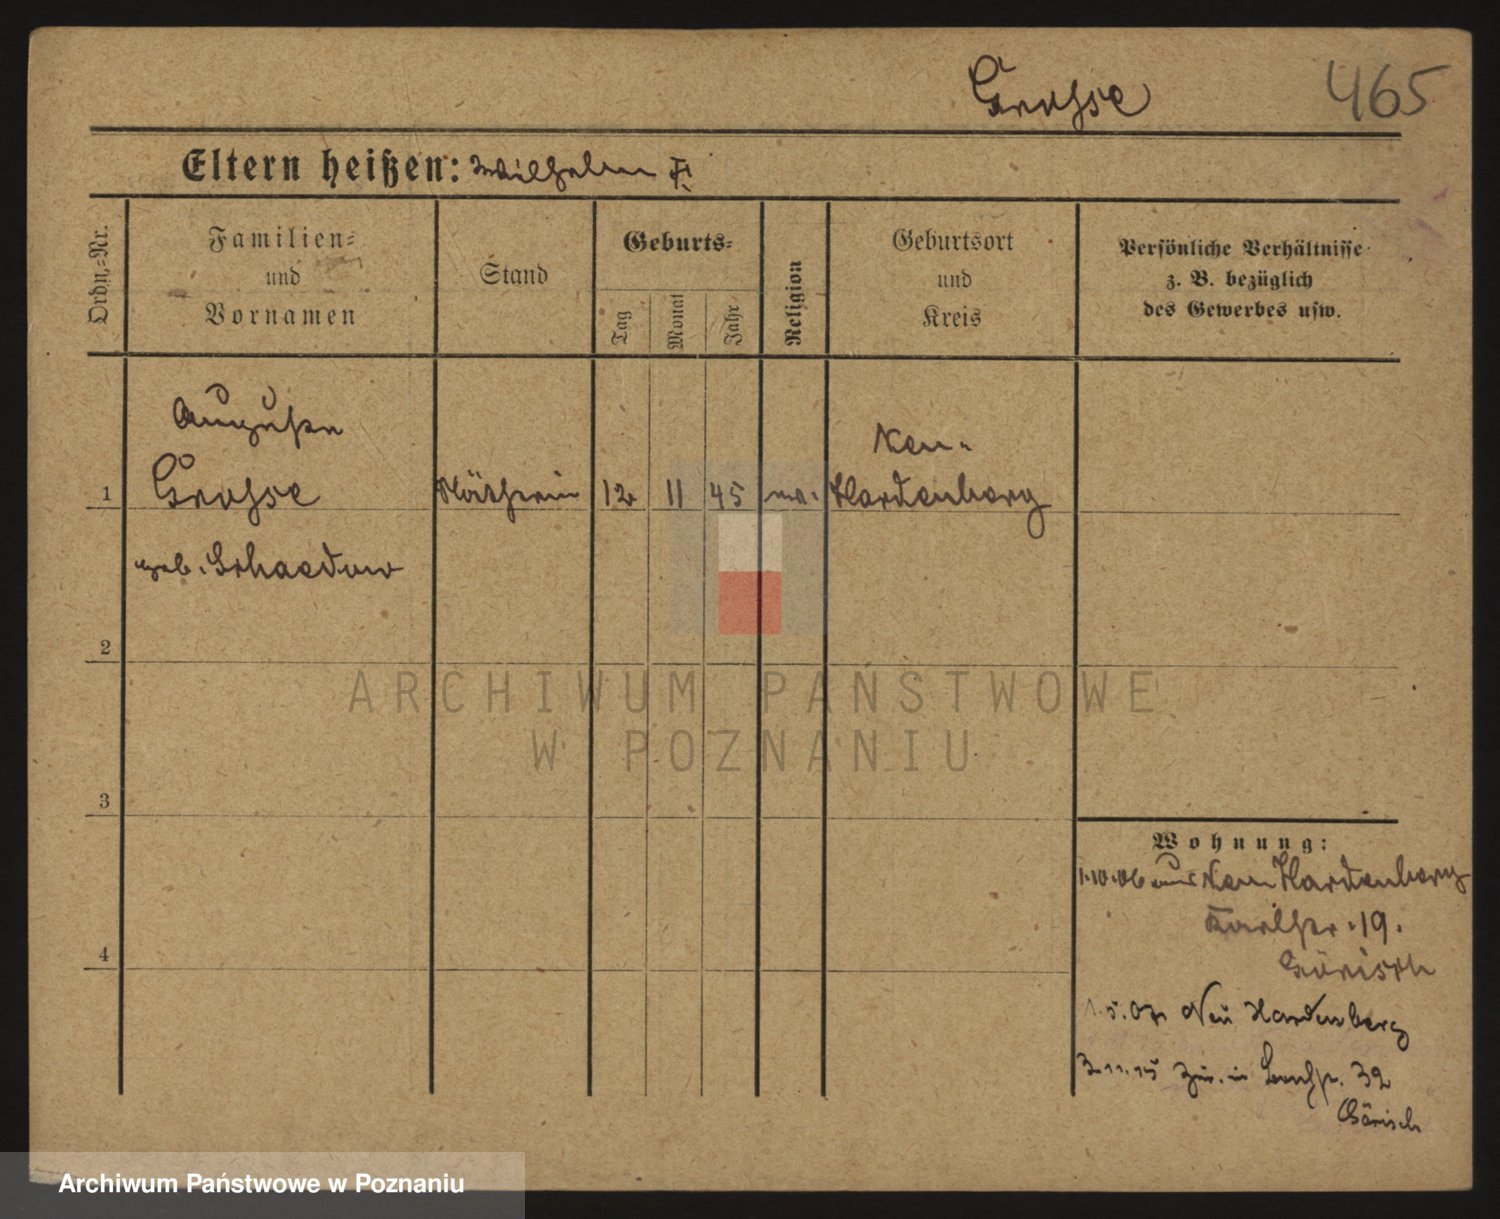 Grosse
465
Eltern heißen: Wilhelm F.
Ordn.-Nr.
Familien-
und
Vornamen
Stand
Geburts-
Tag
Monat
Jahr
Religion
Geburtsort
und
Kreis
Persönliche Verhältnisse
z. B. bezüglich
des Gewerbes usw.
Auguste
Neu-
1 Grosse Nätherin 12 11 45 ev. Hardenberg
geb. Schaedow
2
ARCHIWUM PAŃSTWOWE
W POZNANIU
3
Wohnung:
1.10.06 aus Neu Hardenberg
Karlstr. 19.
Görisch
4
1.5.07 Neu Hardenberg
3.11.15 zur. in 32
Görisch
Archiwum Państwowe w Poznaniu